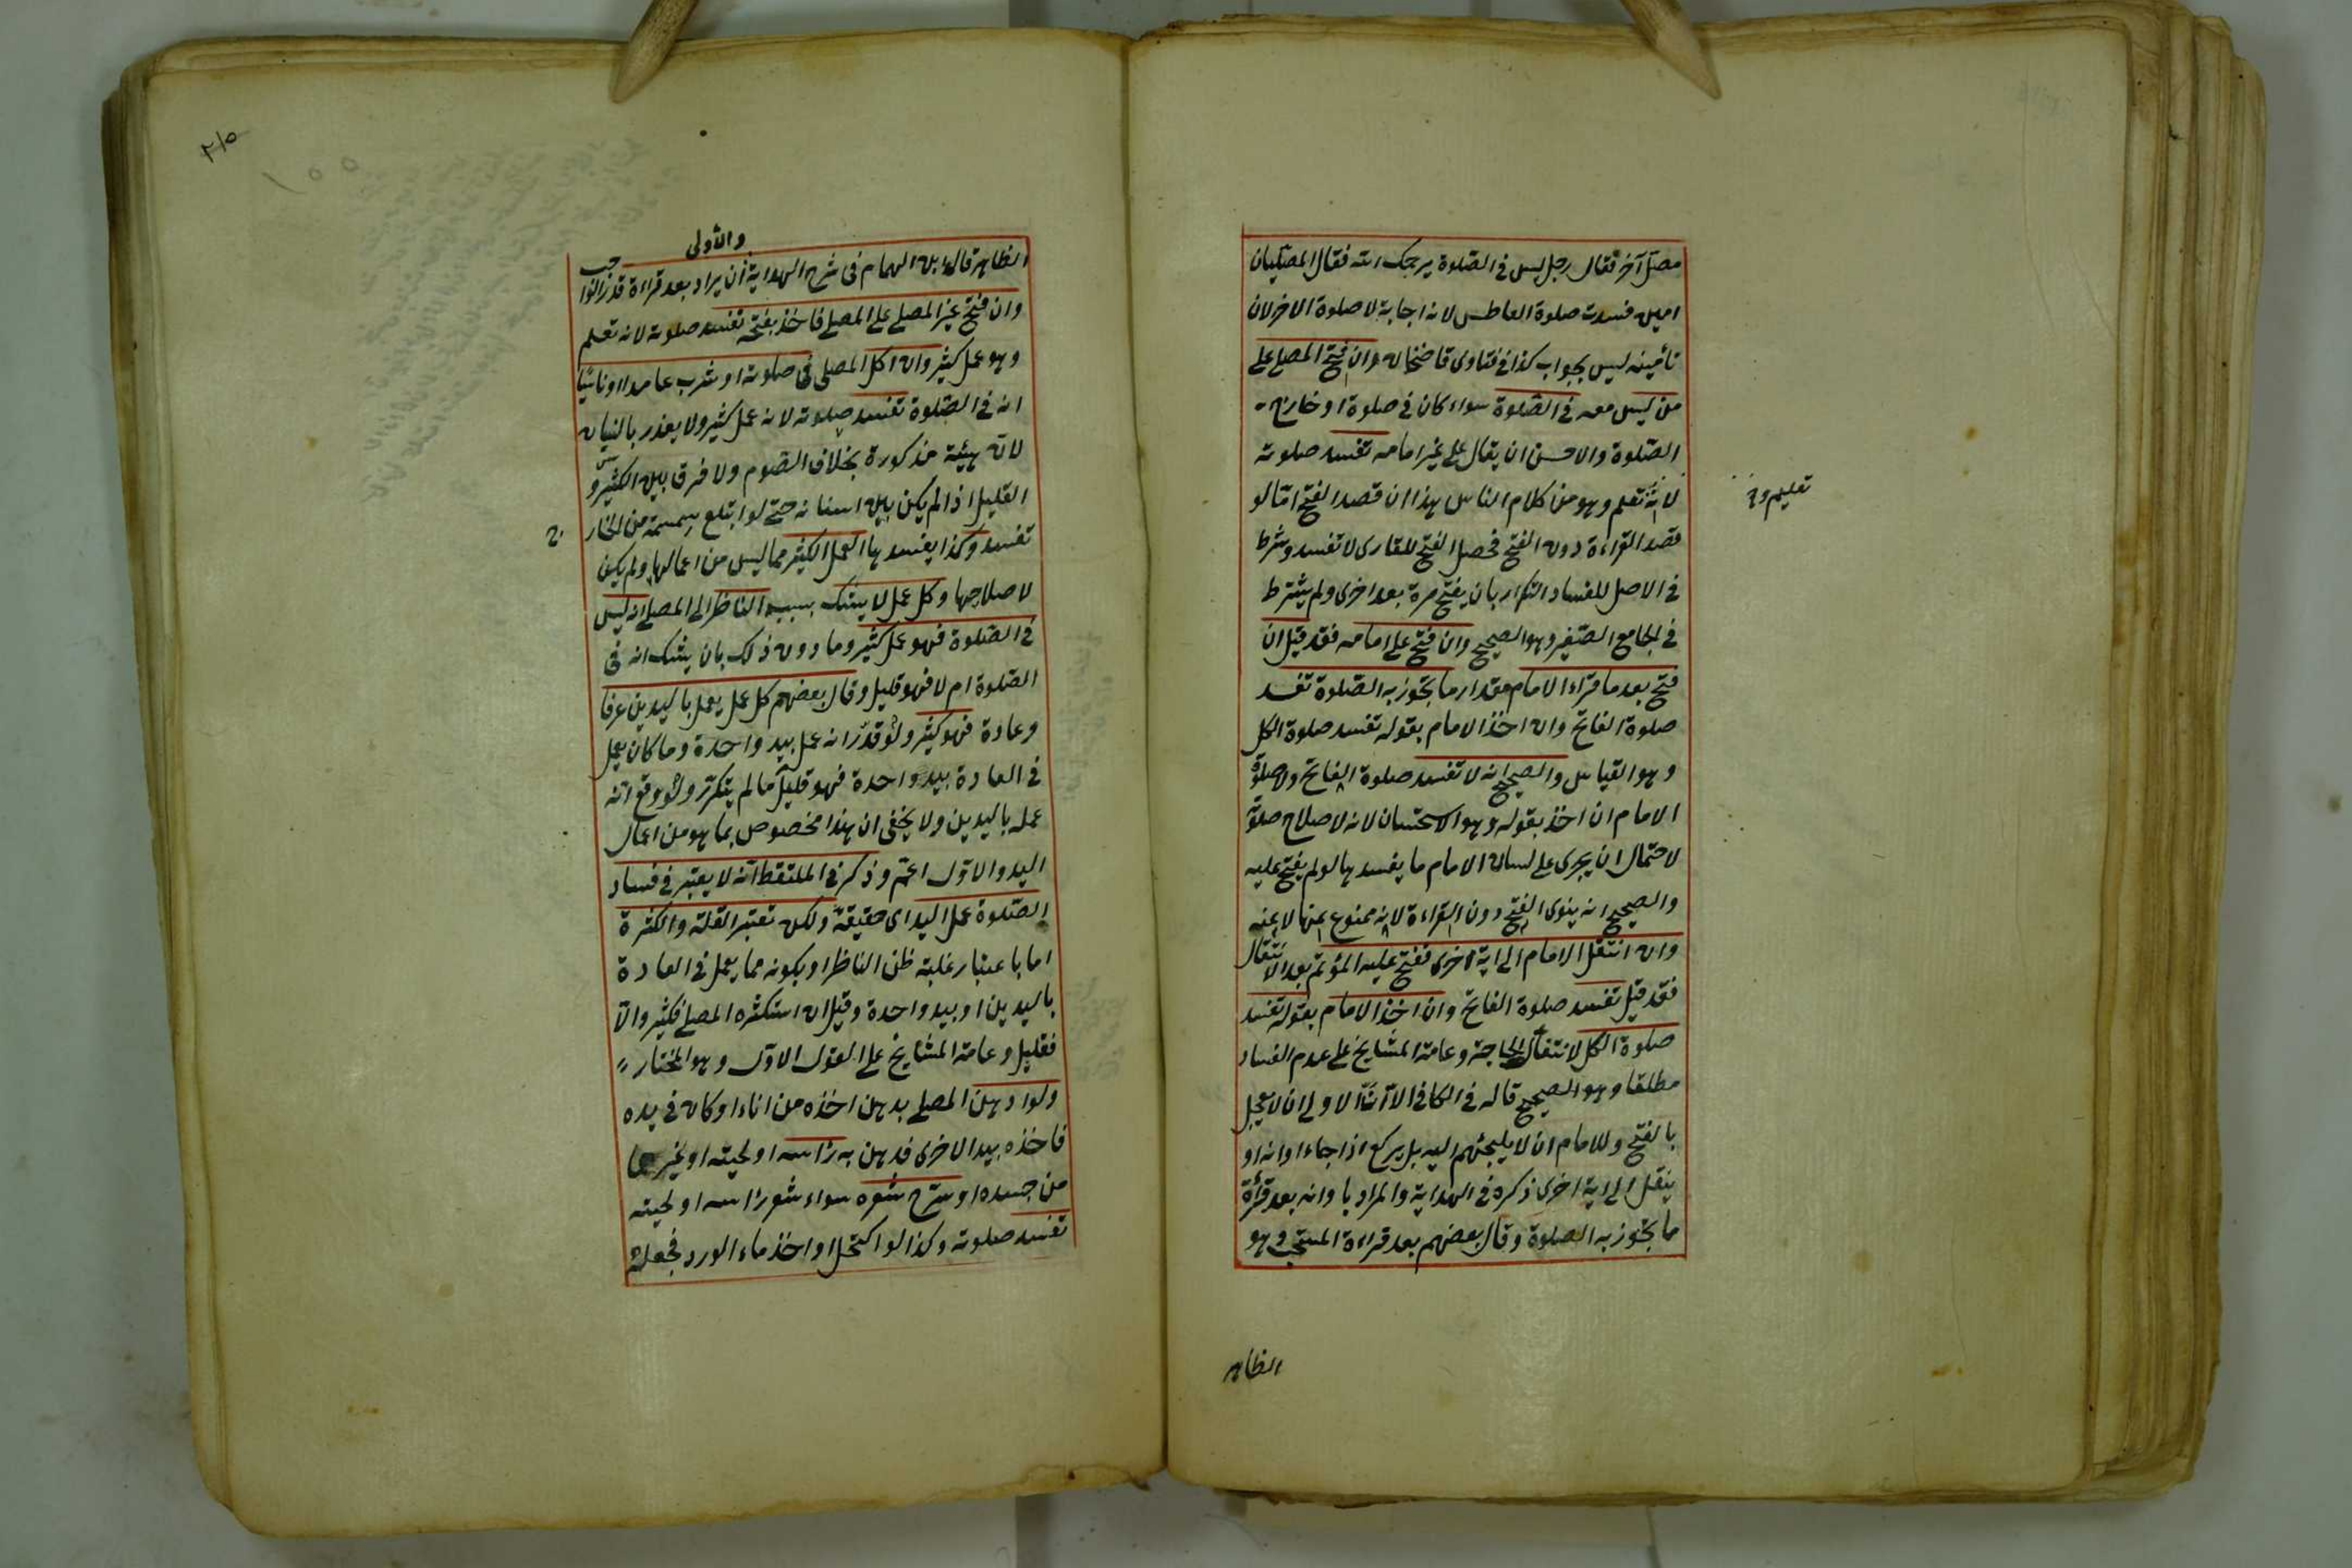 مصلّ آخر فقال رجل ليس فى الصّلوة يرحمك الله فقال المصلّيان
امين فسدت صلوة العاطس لانه اجابة لا صلوة الاخر لان
تأمينه ليس بجواب كذا فى فتاوى قاضيخان وان فتح المصلى على
من ليس معه فى الصّلوة سواء كان فى صلوة او خارج
الصّلوة والاحسن ان يقال على غير امامه تفسد صلوته
لانّه تعلم وهو من كلام الناس هذا ان قصد الفتح امّا لو
تعليم و
قصد القراءة دون الفتح فحصل الفتح للقارى لا تفسد وشرط
فى الاصل للفساد التكرار بان يفتح مرة بعد اخرى ولم يشترط
فى الجامع الصّغير وهو الصحيح وان فتح على امامه فقد قيل ان
فتح بعد ما قراء الامام مقدار ما يجوز به الصّلوة تفسد
صلوة الفاتح وان اخذ الامام بقوله تفسد صلوة الكل
وهو القياس والصحيح انه لا تفسد صلوة الفاتح ولا صلوة
الامام ان اخذ بقوله وهو الاستحسان لانه لاصلاح صلوته
لاحتمال ان يجرى على لسان الامام ما يفسدها لو لم يفتح عليه
والصحيح انه ينوى الفتح دون القراءة لانه ممنوع عنها لا عنه
وان انتقل الامام الى اية اخرى ففتح عليه المؤتم بعد الانتقال
فقد قيل تفسد صلوة الفاتح وان اخذ الامام بقوله تفسد
صلوة الكل لانتفاء الحاجة وعامة المشايخ على عدم الفساد
مطلقا وهو الصحيح قاله فى الكافى الا انّ الاولى ان لا يعجل
بالفتح وللامام ان لا يلجئهم اليه بل يركع اذا جاء اوانه او
ينقل الى اية اخرى ذكره فى الهداية والمراد باوانه بعد قرأة
ما يجوز به الصلوة وقال بعضهم بعد قراءة المستحب وهو
الظاهر
٢١٥
١٥٥
والأولى
الظاهر قال ابن الهمام فى شرح الهداية أن يراد بعد قراءة قدر الوا
جب
وان فتح غير المصلى على المصلى فاخذ بفتحه تفسد صلوته لانه تعلم
وهو عمل كثير وان اكل المصلى فى صلوته او شرب عامدا او ناسيا
انه فى الصّلوة تفسد صلوته لانه عمل كثير ولا يعذر بالنسيان
لان هيئته مذكورة بخلاف الصّوم ولا فرق بين الكثير و
القليل اذا لم يكن بين اسنانه حتى لو ابتلع سمسمة من الخار
ج
تفسد وكذا يفسدها العمل الكثير مما ليس من اعمالها ولم يكن
لاصلاحها وكل عمل لا يشك بسببه الناظر الى المصلى انه ليس
فى الصّلوة فهو عمل كثير وما دون ذلك بان يشك انه فى
الصّلوة ام لا فهو قليل وقال بعضهم كل عمل يعمل باليدين عرفا
وعادة فهو كثير ولو قدّر انه عمل بيد واحدة وما كان يعمل
فى العادة بيد واحدة فهو قليل ما لم يتكرّر ولو وقع انه
عمله باليدين ولا يخفى ان هذا مخصوص بما هو من اعمال
اليد والاوّل اعمّ وذكر فى الملتقط انه لا يعتبر فى فساد
الصّلوة عمل اليد اى حقيقةً ولكن تعتبر القلة والكثرة
اما باعتبار غلبة ظن الناظر او بكونه مما يعمل فى العادة
باليدين او بيد واحدة وقيل ان استكثره المصلى فكثير والّا
فقليل وعامة المشايخ على القول الاوّل وهو المختار
ولو ادهن المصلى بدهن اخذه من اناء او كان فى يده
فاخذه بيد الاخرى فدهن به رأسه او لحيته او غيرهما
من جسده او سرّح شعره سواء شعر رأسه او لحيته
تفسد صلوته وكذا لو اكتحل او اخذ ماء الورد فجعله